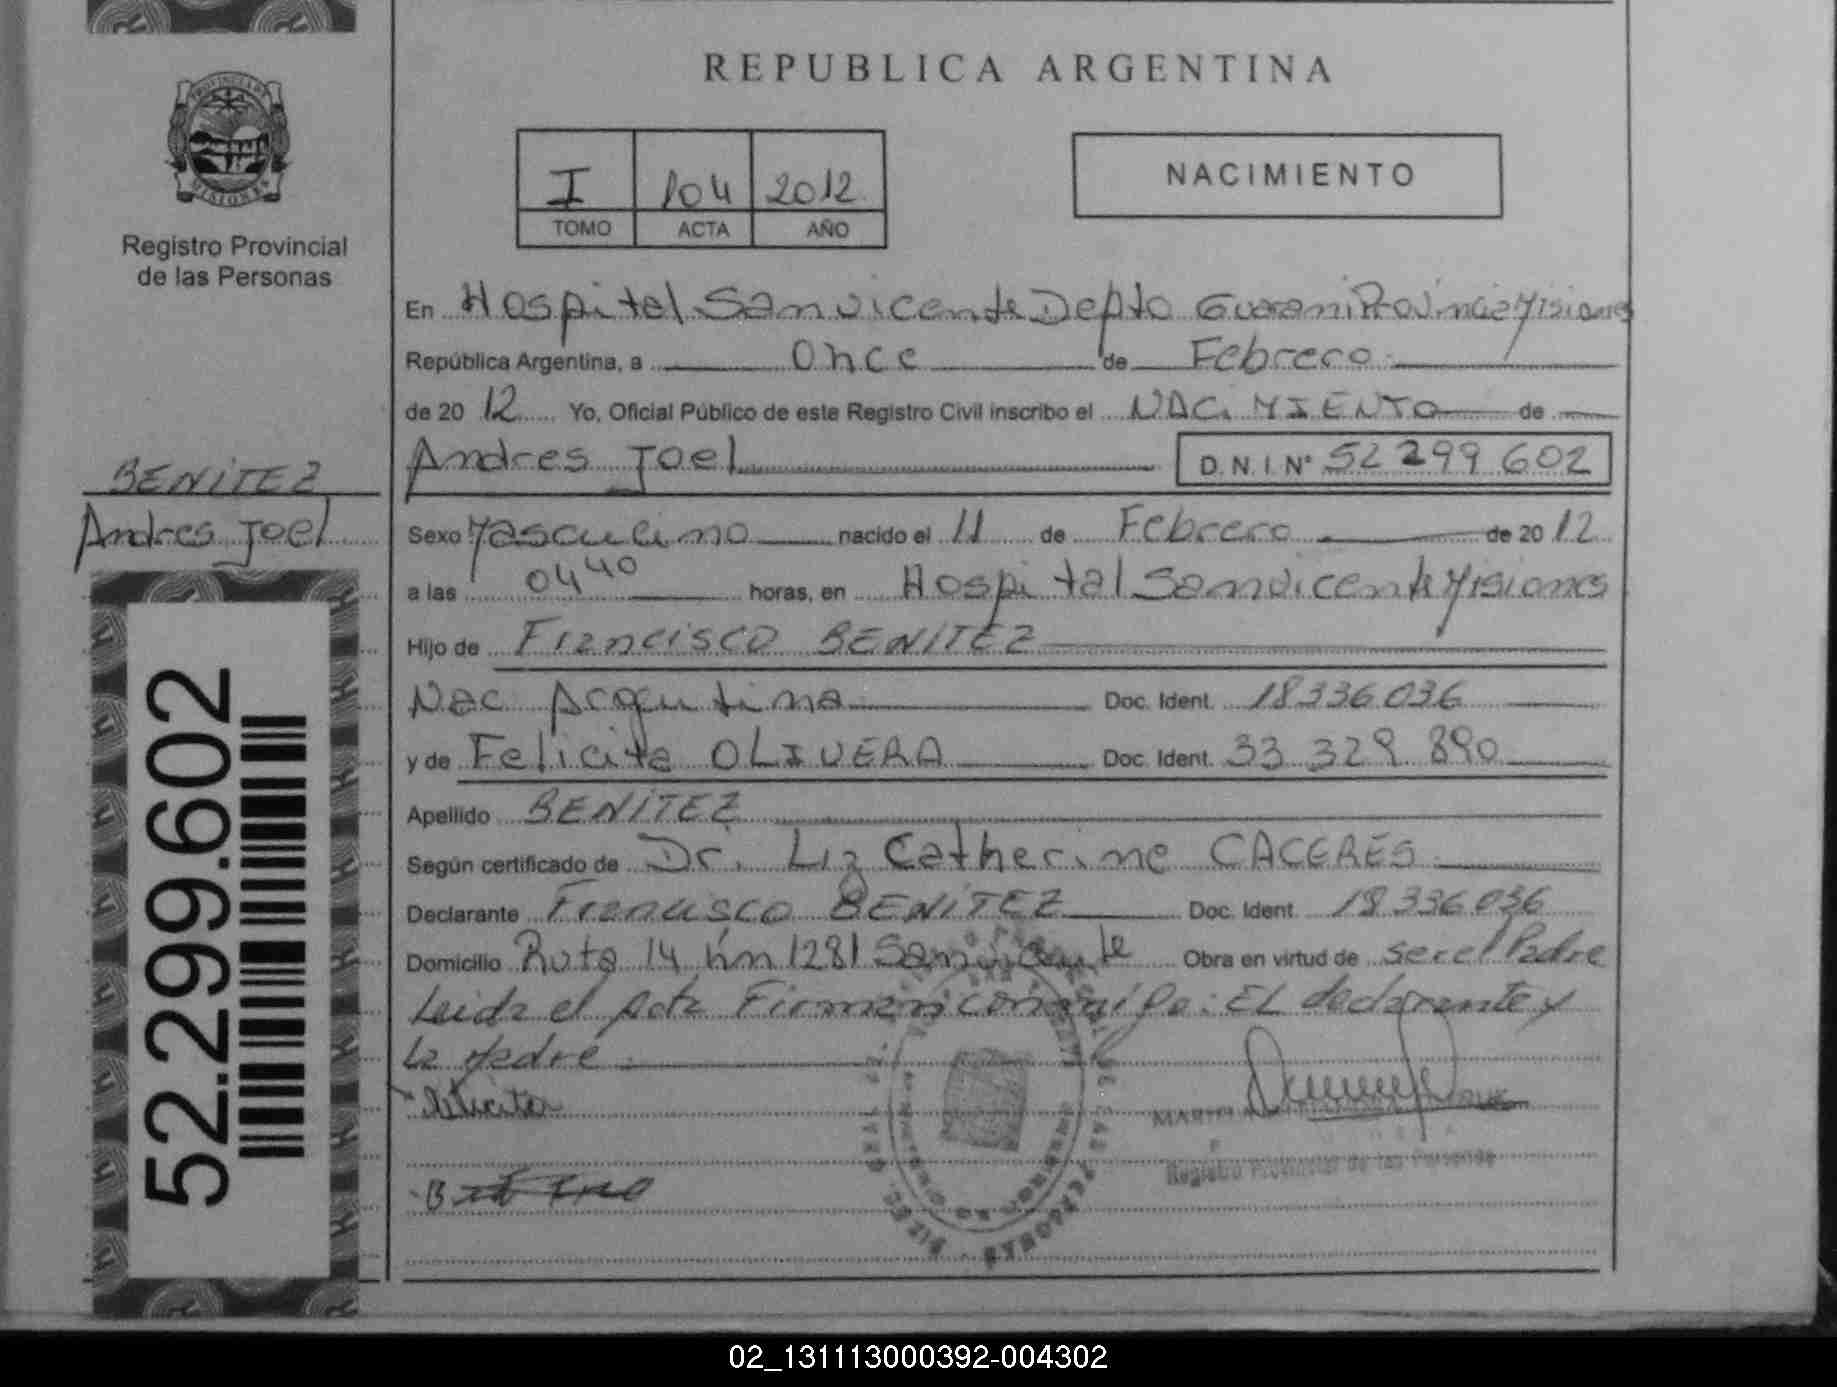 REPUBLICA ARGENTINA
PROVINCIA DE MISIONES
Registro Provincial
de las Personas
I 104 2012
TOMO ACTA AÑO
NACIMIENTO
En Hospital San vicente Depto Guarani Provincia Misiones
República Argentina, a Once de Febrero
de 20 12 Yo, Oficial Público de este Registro Civil inscribo el NACIMIENTO de
Andres Joel D.N.I. N° 52 299 602
BENITEZ
Andres Joel
Sexo Masculino nacido el 11 de Febrero de 20 12
a las 04 40 horas, en Hospital San vicente Misiones
Hijo de Francisco BENITEZ
Nac Argentina Doc. Ident. 18336036
y de Felicita OLIVERA Doc. Ident. 33 329 890
Apellido BENITEZ
Según certificado de Dr. Liz Catherine CACERES
Declarante Francisco BENITEZ Doc. Ident. 18336036
Domicilio Ruta 14 km 1281 San vicente Obra en virtud de ser el Padre
Leida el Acta Firman conmigo: EL declarante y
la Madre
Registro Provincial de las Personas
52.299.602
02_131113000392-004302